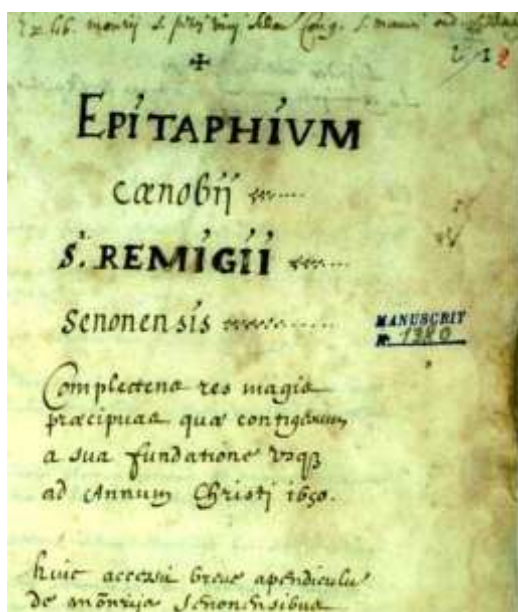 Ex lib. monrij S. Petri
EPITAPHIVM
cœnobij
S. REMIGII
senonensis
MANUSCRIT
N. 1380
Complectens res magis
præcipuas quæ contigerunt
a sua fundatione vsqȝ
ad Annum Christi 1650.
huic accessit breue apendiculū
de mōnrijs senonensibus